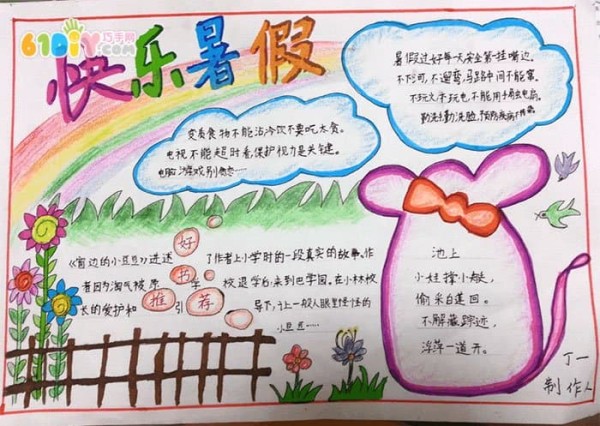 61DIY巧手网
.com
快乐暑假
变质食物不能沾冷饮不要吃太贪。
电视不能超时看保护视力是关键。
电脑游戏别
暑假过好每一天安全第一挂嘴边。
不下河,不遛弯,马路中间不能窜。
不玩火不玩电,不能用手去
勤洗手勤洗脸,预防疾病
好书推荐
《窗边的小豆豆》讲述了作者上小学时的一段真实的故事。作
者因为淘气被原校退学后,来到巴学园。在小林校
长的爱护和引导下,让一般人眼里怪怪的
小豆豆……
池上
小娃撑小艇,
偷采白莲回。
不解藏踪迹,
浮萍一道开。
丁一
制作人